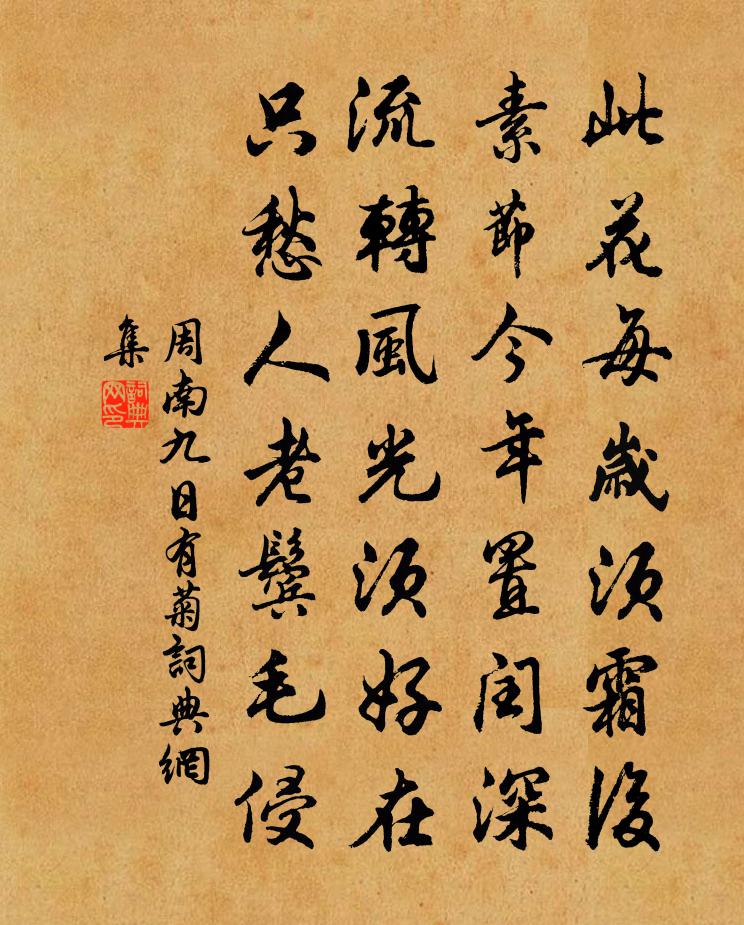 此花每歲須霜後
素節今年置閏深
流轉風光須好在
只愁人老鬢毛侵
周南九日有菊詞典網
集
詞典网印